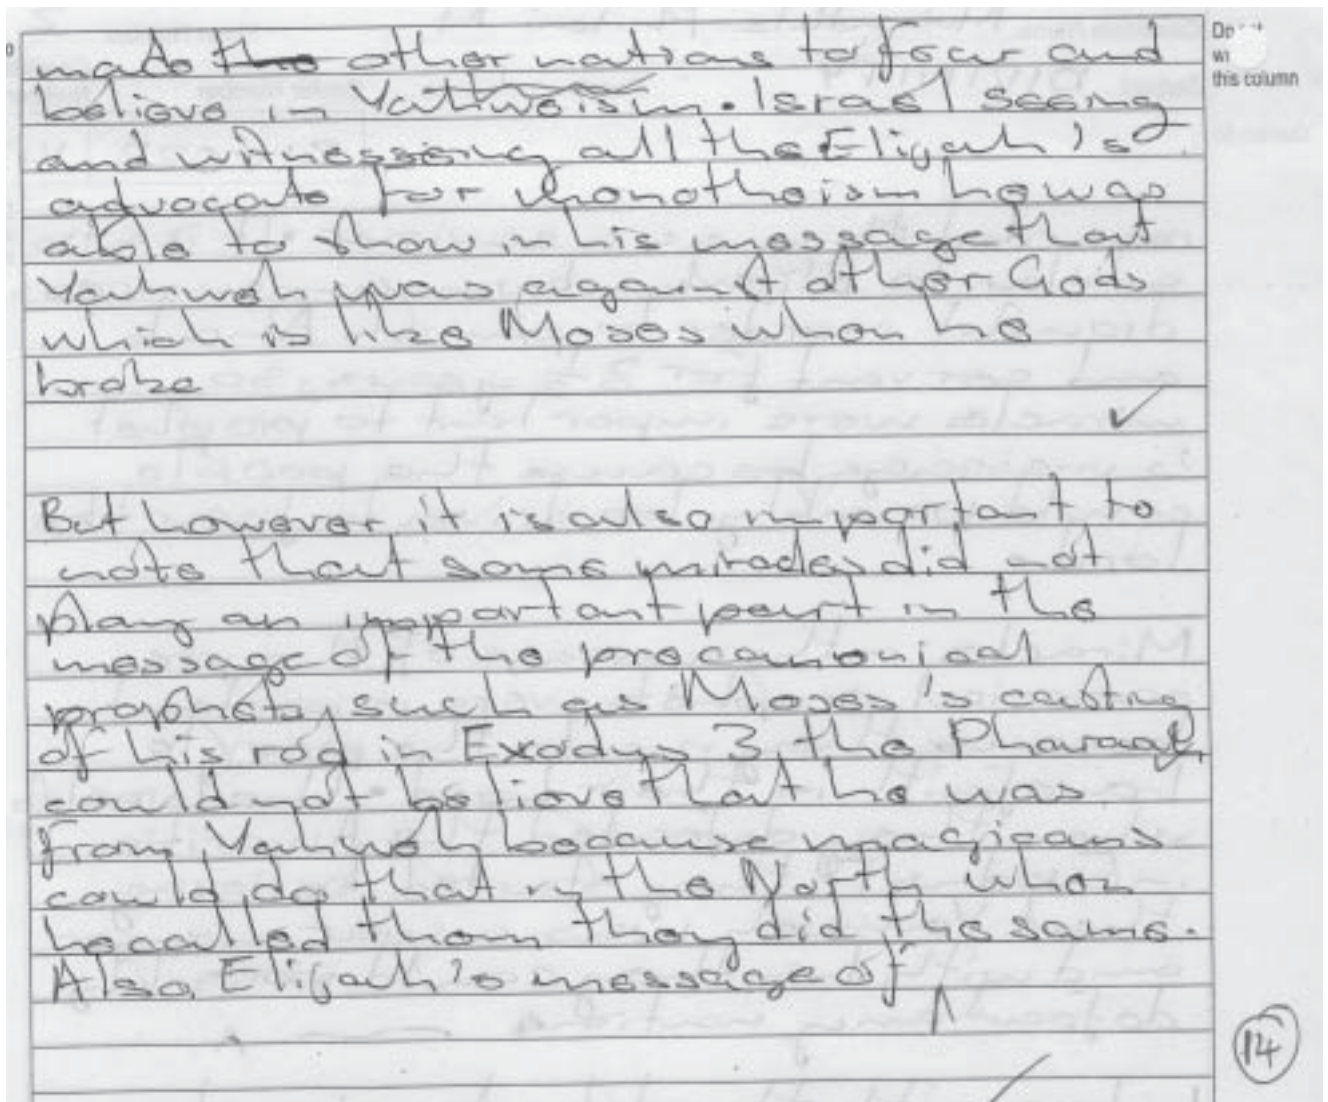 Do not
w
this column
made the other nations to fear and
believe in Yahweism. Israel seeing
and witnessing all the Elijah's
advocate for monotheism he was
able to show in his message that
Yahweh was against other Gods
which is like Moses when he
broke
But however it is also important to
note that some miracles did not
play an important part in the
message of the precanonical
prophets, such as Moses's casting
of his rod in Exodus 3, the Pharaoh
could not believe that he was
from Yahweh because magicans
could do that in the North when
he called them they did the same.
Also, Elijah's message of
14